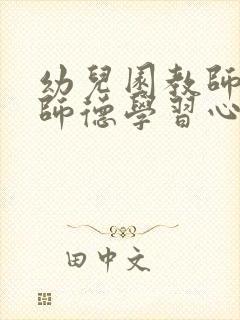 幼兒園教師
師德學習心
田中文